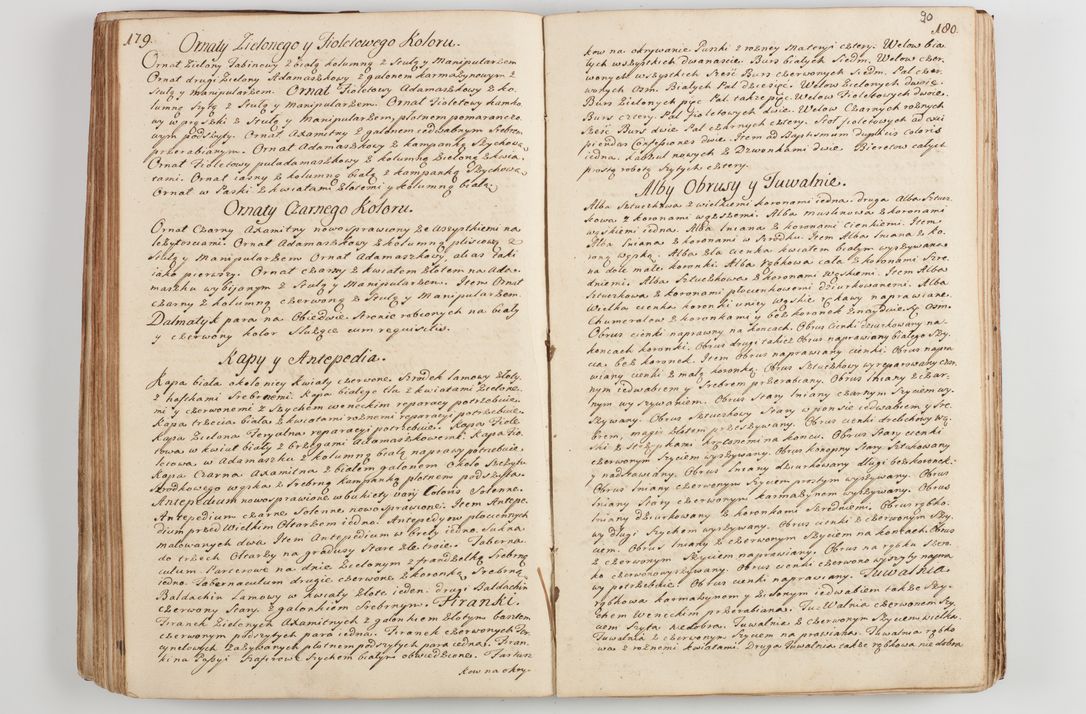 179.
Ornaty Zielonego y Fioletowego Koloru.
Ornat Zielony Tabinowy z białą kolumną z Stułą y Manipularzem
Ornat drugi Zielony Adamaszkowy z galonem karmazynowym z
Stułą y Manipularzem. Ornat Fioletowy Adamaszkowy z ko-
lumną Szytą z Stułą y Manipularzem. Ornat Fioletowy kamko-
wy w prążki z Stułą y Manipularzem, płotnem pomaranczo-
wym podszyty. Ornat Axamitny z galonem iedwabnym Srebrem
przerabianym. Ornat Adamaszkowy z kampanką Szychową
Ornat Fioletowy puładamaszkowy z kolumną Zieloną z kwia-
tami. Ornat iasny z kolumną białą z kampanką Szychową
Ornat w Paski z kwiatami złotemi y kolumną białą
Ornaty Czarnego Koloru.
Ornat Czarny Axamitny nowo sprawiony ze wszystkiemi na
leżytosciami. Ornat Adamaszkowy z kolumną pliszową z
Stułą y Manipularzem Ornat Adamaszkowy, alias taki
iako pierwszy. Ornat czarny z kwiatem złotem na Ada-
maszku wybijanym z Stułą y Manipularzem. Item Ornat
czarny z kolumną czerwoną z Stułą y Manipularzem.
Dalmatyk para na Obiedwie Stronie robionych na biały
y czerwony kolor Służące cum requisitis.
Kapy y Antepedia.
Kapa biała około niey kwiaty czerwone, Srodek lamowy złoty.
z haftkami Srebrnemi. Kapa białego tła z kwiatami Zielone-
mi y czerwonemi z Szychem weneckim reparacyi potrzebuie.
Kapa trzecia biała z kwiatami roznemi reparacyi potrzebuie.
Kapa Zielona Feryalna reparacyi potrzebuie. Kapa Fiole
towa w kwiat biały z brzegami Adamaszkowemi. Kapa Fio-
letowa, w Adamaszku z kolumną białą naprawy potrzebuie.
Kapa Czarna Axamitna z białem galonem około Szczytu
Srodkowego wązka z Srebrną kampanką płotnem podszyta.
Antepedium nowo sprawione w bukiety Coloris Solenne.
Antepedium czarne Solenne nowo sprawione. Item Antepe-
dium przed Wielkim Ołtarzem iedno. Antepedyow płociennych
malowanych dwa. Item Antepedium w brety iedno Sukna
do trzech Ołtarzy na gradusy Stare złe troie. Taberna-
culum Parterowe na dnie Zielonym z frandzelką Srebrną
iedno. Tabernaculum drugie czerwone z koronką Srebrną.
Baldachin Lamowy w kwiaty złote ieden. drugi Baldachin
czerwony Stary z galonkiem Srebrnym. Firanki.
Firanek Zielonych Axamitnych z galonkiem złotym bartem
czerwonym podszytych para iedna. Firanek czerwonych Por-
cynelowych zażywanych płotnem podszytych para iedna. Firan-
kina Szychem białym obwiedziona. Fartusz
kow na okry-
90
180.
kow na okrywanie Puszki z rożney Materyi cztery. Welow bia-
łych wszystkich dwanascie. Burs białych Siedm. Welow czer-
wonych wszystkich Szesć Burs czerwonych Siedm. Pal czer-
wonych Osm. Białych Pal dziesięc. Welow Zielonych dwoie.
Burs Zielonych pięc Pal także pięc. Welow Fioletowych dwoie.
Burs cztery. Pal fioletowych dwie. Welow Czarnych rożnych
Szesc Burs dwie Pal czarnych cztery. Stoł fioletowych ad exci-
piendas Confessiones dwie. Item ad Baptismum duplicis coloris
iedna. Kapzul nowych z Dzwonkami dwie Bieretow całych
prostą robotą Szytych cztery.
Alby Obrusy y Tuwalnie.
Alba Sztuczkowa z wielkiemi koronami iedna. druga Alba Sztucz-
kowa z koronami wązszemi. Alba muslinowa z koronami
wązkiemi iedna. Alba lniana z koronami cienkiemi. Item
Alba lniana z koronami w Srodku. Item Alba lniana z ko-
roną wązką. Alba zła cienka kwiatem białym wyszywana
na dole małe koronki. Alba rąbkowa cała z koronami Sre-
dniemi. Alba Sztuczkowa z koronami wąskiemi. Item Alba
Sztuczkowa z koronami płocienkowemi dziurkowanemi. Alba
Wielka cienka koronki uniey wązkie rękawy naprawiane.
Chumerałow z koronkami y bez koronek znayduie się Osm.
Obrus cienki naprawny na koncach. Obrus cienki dziurkowany na
koncach koronki. Obrus drugi takież Obrus naprawiany białego Szy-
cia, bez koronek. Item Obrus naprawiany cienki. Obrus napra
wiany cienki z małą koronką. Obrus Sztuczkowy wyreparowany czar-
nym iedwabiem y Srebrem przerabiany. Obrus lniany z czar-
nym wyszywaniem. Obrus Stary lniany czarnym Szyciem wy-
Szywany. Obrus Sztuczkowy Stary w ponsie iedwabiem y Sre-
brem, magis złotem przeszywany. Obrus cienki drelichowy wą-
ski z Strzępkami kręconemi na koncu. Obrus Stary cienki
czerwonym Szyciem wyszywany. Obrus konopny Stary Sztukowany
y nadstawiany. Obrus lniany dziurkowany długi bez koronek.
Obrus lniany czerwonym Szyciem prostym wyszywany. Obrus
lniany Stary czerwonym karmazynem wyszywany. Obrus
lniany dziurkowany z koronkami Srednicemi. Obrus rąbko-
wy długi Szychem wyszywany. Obrus cienki z czerwonym Szy-
ciem. Obrus lniany z czerwonym Szyciem na koncach. Obrus
z czerwonym Szyciem naprawiany. Obrus na rąbku Szero-
ko czerwono wyszywany. Obrus cienki czerwono wyszyty napra
wy potrzebuie. Obrus cienki naprawiany. Tuwalnia
rąbkowa karmazynem y Zielonym iedwabiem także Szy-
chem Weneckim przerabiana. Tuwalnia czerwonem Szy-
ciem Szyta niedobra. Tuwalnia z czerwonym Szyciem wielka.
Tuwalnia z czerwonym Szyciem na prawiana. Tuwalnia rąbko
wa z rożnemi kwiatami. Druga Tuwalnia także rąbkowa nie dobra